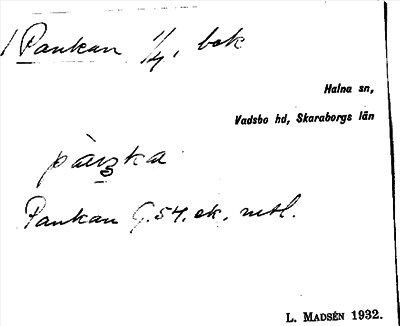 Pankan 1/4, bok
Halna sn,
Vadsbo hd, Skaraborgs län
Pankan G.54. ek. mtl.
L. MADSÉN 1932.